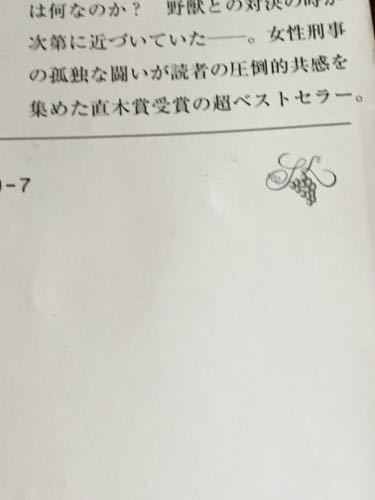 は何なのか？　野獣との対決の時が
次第に近づいていた――。女性刑事
の孤独な闘いが読者の圧倒的共感を
集めた直木賞受賞の超ベストセラー。
-7